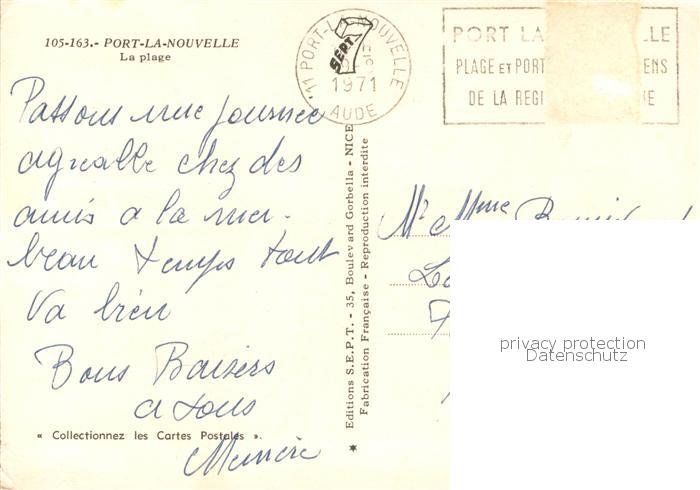 105-163.- PORT-LA-NOUVELLE
La plage
Passons une journée
agréable chez des
amis a la mer.
beau temps tout
va bien
Bons Baisers
a tous
« Collectionnez les Cartes Postales ».
11 PORT-LA NOUVELLE
7
SEPT.
1971
AUDE
PORT LA LLE
PLAGE ET PORT ENS
DE LA REGI E
Editions S.E.P.T. - 35, Boulevard Gorbella - NICE
Fabrication Française - Reproduction interdite
Mr Mme
privacy protection
Datenschutz